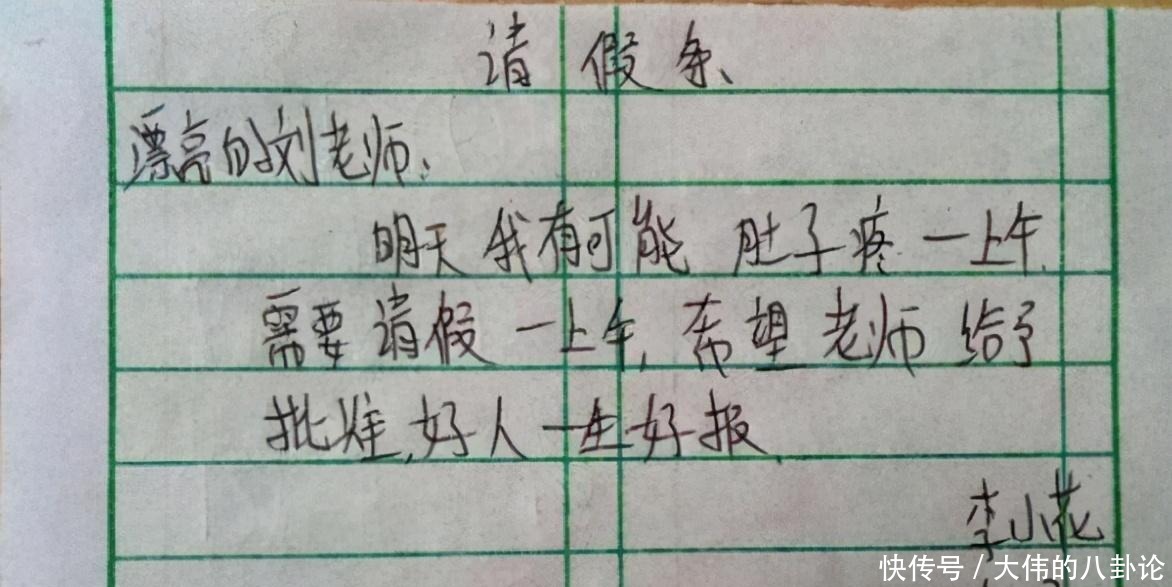 请假条
漂亮的刘老师:
明天我有可能肚子疼一上午,
需要请假一上午,希望老师给予
批准,好人一生好报.
李小花
快传号 / 大伟的八卦论